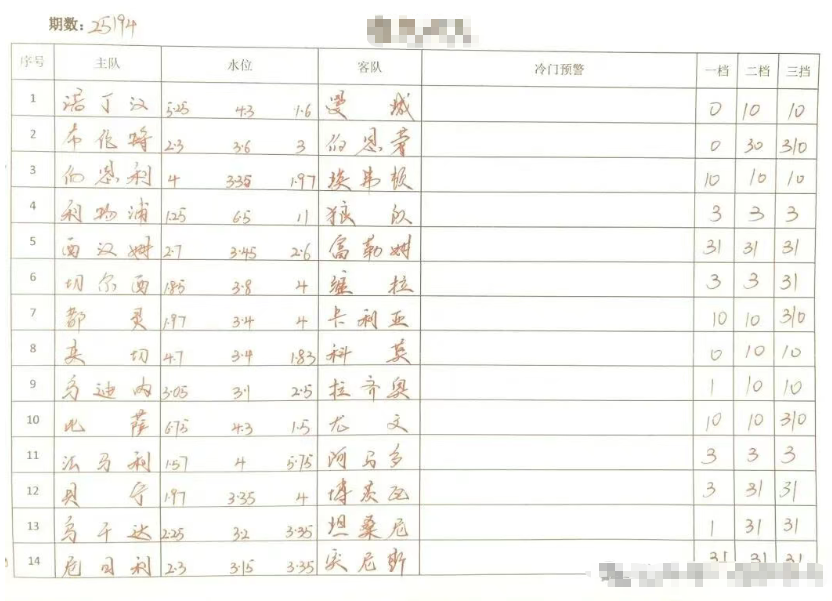 期数: 25194
序号 主队 水位 客队 冷门预警 一档 二档 三挡
1 诺丁汉 5.25 4.3 1.6 曼城 0 10 10
2 布伦特 2.3 3.6 3 伯恩茅 0 30 310
3 伯恩利 4 3.35 1.97 埃弗顿 10 10 10
4 利物浦 1.25 6.5 11 狼队 3 3 3
5 西汉姆 2.7 3.45 2.6 富勒姆 31 31 31
6 切尔西 1.85 3.8 4 维拉 3 3 31
7 都灵 1.97 3.4 4 卡利亚 10 10 310
8 莱切 4.7 3.4 1.83 科莫 0 10 10
9 乌迪内 3.05 3.1 2.5 拉齐奥 1 10 10
10 比萨 6.75 4.3 1.5 尤文 10 10 310
11 法马利 1.57 4 5.75 阿马多 3 3 3
12 贝宁 1.97 3.35 4 博茨瓦 3 31 31
13 乌干达 2.25 3.2 3.35 坦桑尼 1 31 31
14 尼日利 2.3 3.15 3.35 突尼斯 31 31 31